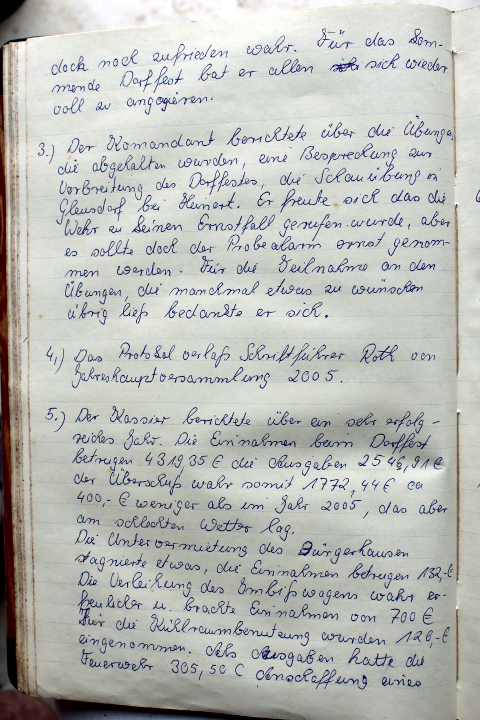 doch noch zufrieden wahr. Für das kom-
mende Dorffest bat er allen sich wieder
voll zu angagieren.
3.) Der Komandant berichtete über die Übungen
die abgehalten wurden, eine Besprechung zur
Vorbreitung des Dorffestes, die Schauübung in
bei Hunert. Er freute sich das die
Wehr zu keinen Ernstfall gerufen wurde, aber
es sollte doch der Probealarm ernst genom-
men werden. Für die Teilnahme an den
Übungen, die manchmal etwas zu wünschen
übrig ließ bedankte er sich.
4.) Das Protokol verlaß Schriftführer Roth von
Jahreshauptversammlung 2005.
5.) Der Kassier berichtete über ein sehr erfolg-
reiches Jahr. Die Einnahmen beim Dorffest
betrugen 4319,35 € die Ausgaben 2546,91 €
der Überschuß wahr somit 1772,44 € ca
400,- € weniger als im Jahr 2005, das aber
am schlechten Wetter lag.
Die Untervermietung des Bürgerhausen
stagnierte etwas, die Einnahmen betrugen 132,-€
Die Verleihung des Imbißwagens wahr er-
freulicher u. brachte Einnahmen von 700 €
Für die Kühlraumbenutzung wurden 120,-€
eingenommen. Als Ausgaben hatte die
Feuerwehr 305,50 € Anschaffung eines